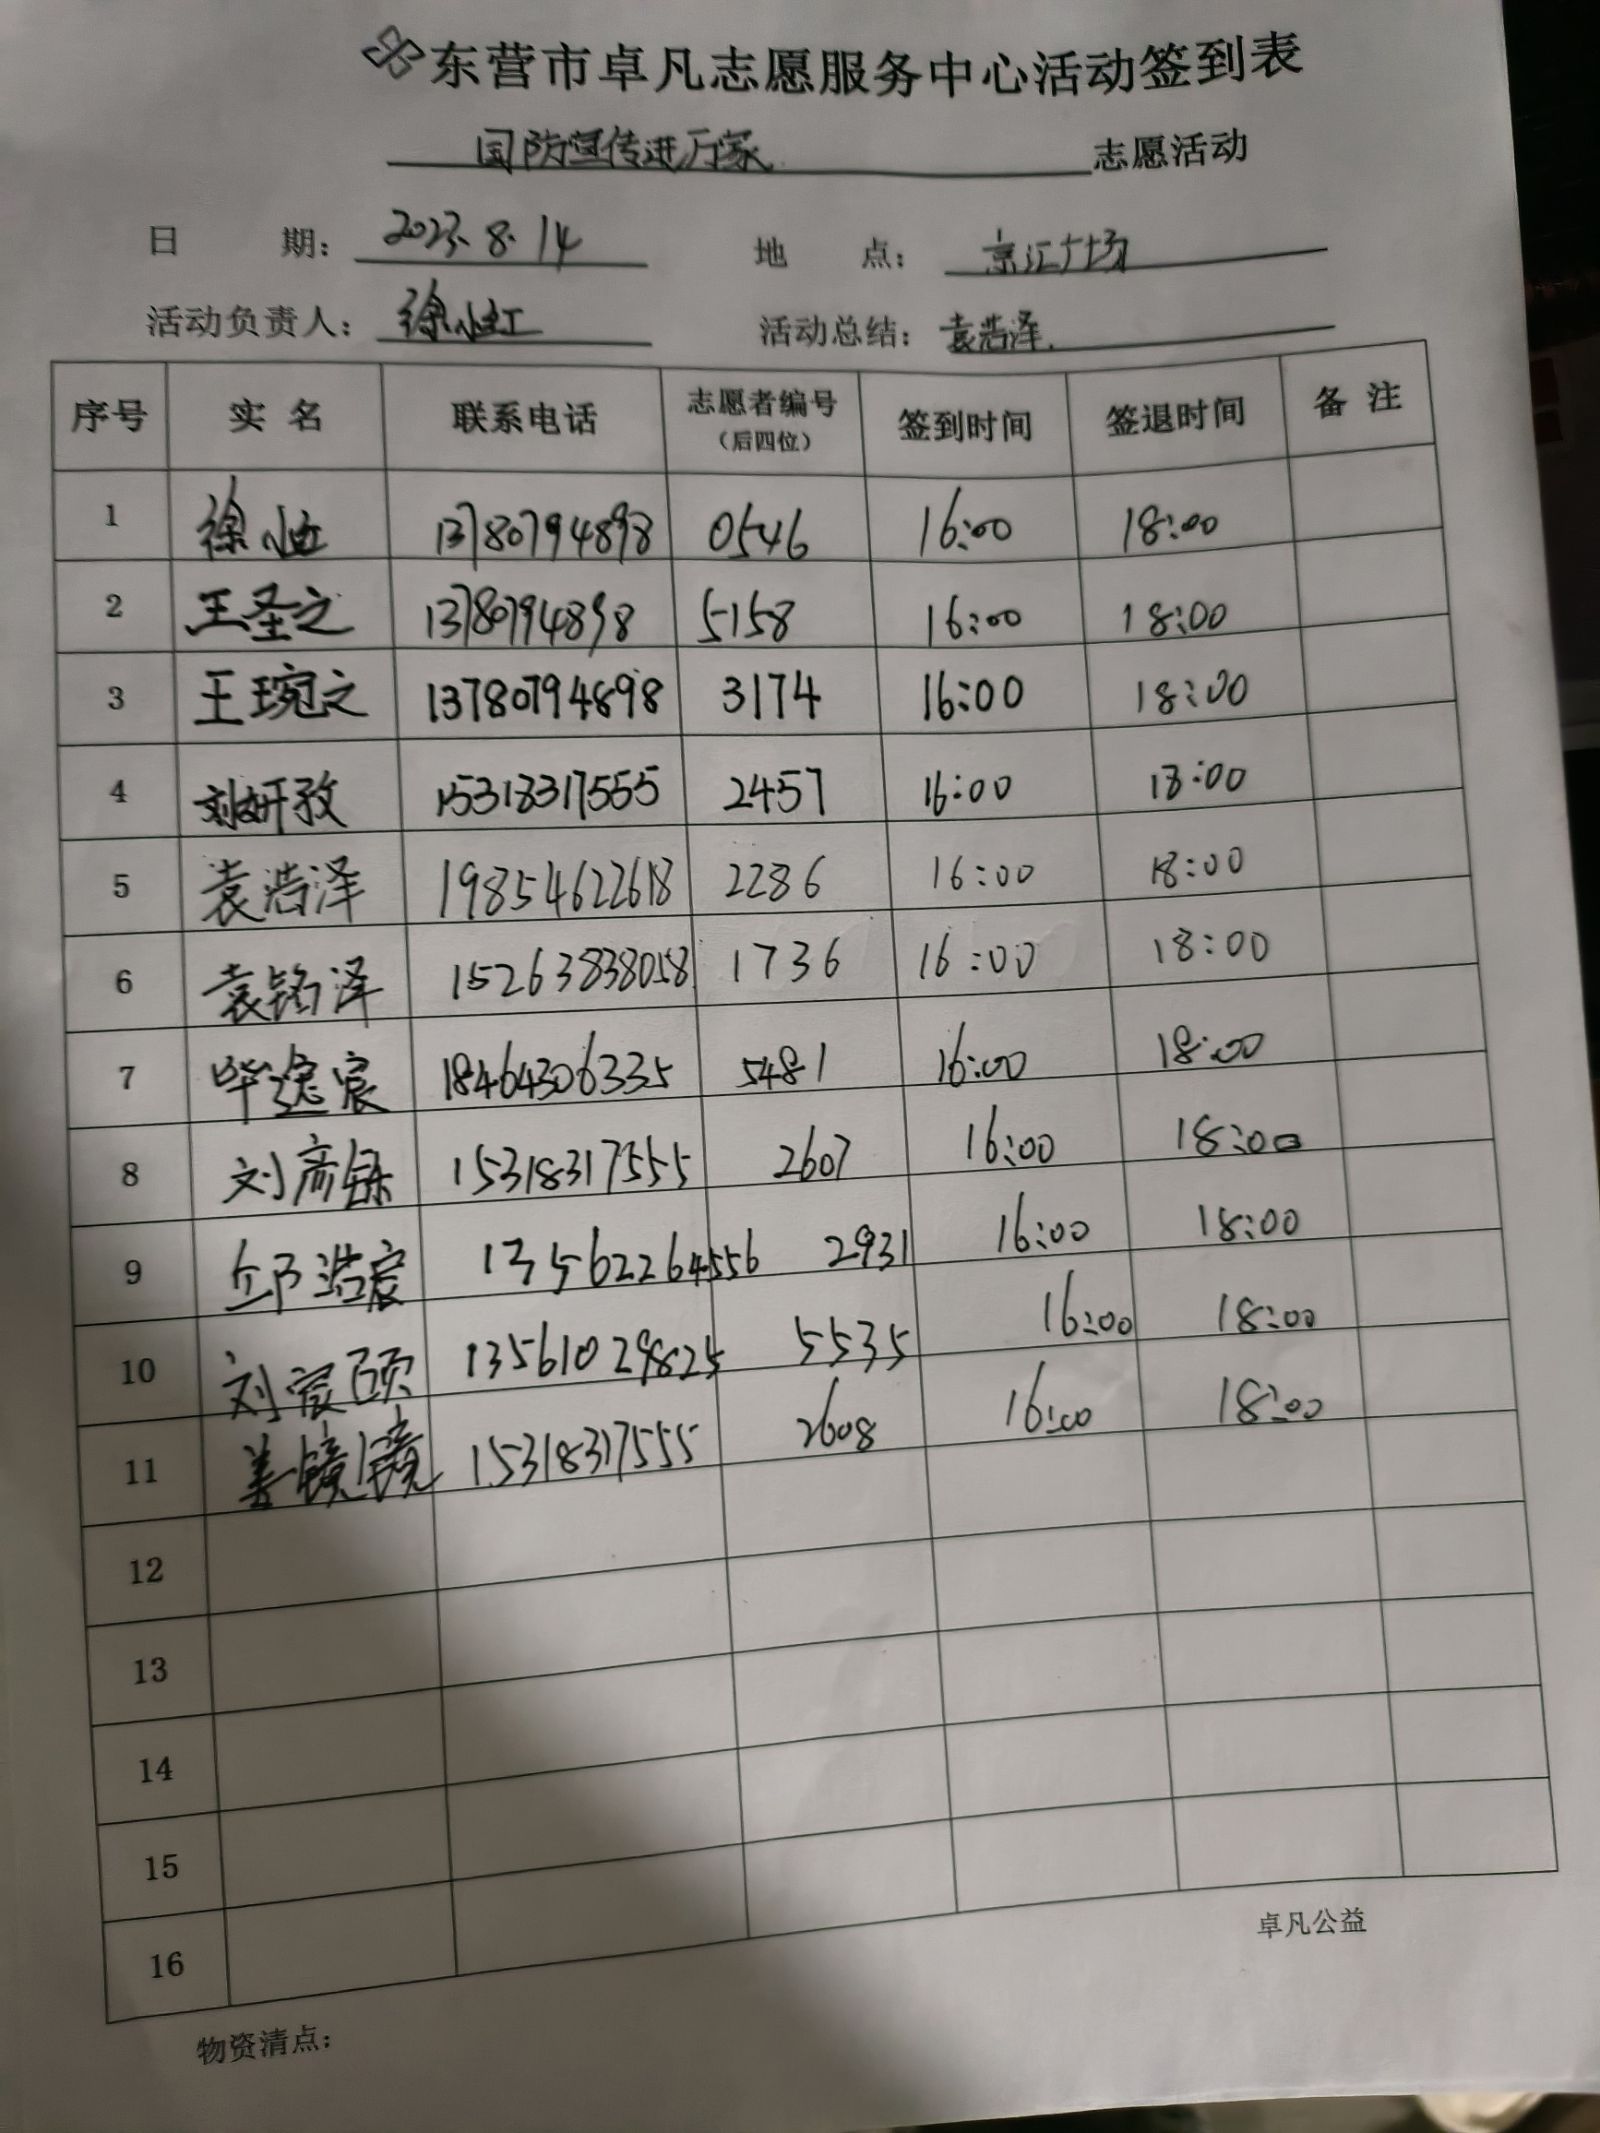 东营市卓凡志愿服务中心活动签到表
国防宣传进万家 志愿活动
日 期: 2023.8.14 地 点: 京汇广场
活动负责人: 徐小虹 活动总结: 袁浩泽.
序号 实名 联系电话 志愿者编号(后四位) 签到时间 签退时间 备注
1 徐小虹 13780794898 0546 16:00 18:00
2 王圣之 13780794898 5158 16:00 18:00
3 王琬之 13780794898 3174 16:00 18:00
4 刘妍孜 15318317555 2457 16:00 18:00
5 袁浩泽 19854622618 2286 16:00 18:00
6 袁铭泽 15263838058 1736 16:00 18:00
7 毕逸宸 18464306335 5481 16:00 18:00
8 刘彦铄 15318317555 2607 16:00 18:00
9 浩宸 13562264556 2931 16:00 18:00
10 刘宸颐 13561029825 5535 16:00 18:00
11 姜镜镜 15318317555 2608 16:00 18:00
12
13
14
15
16
卓凡公益
物资清点: